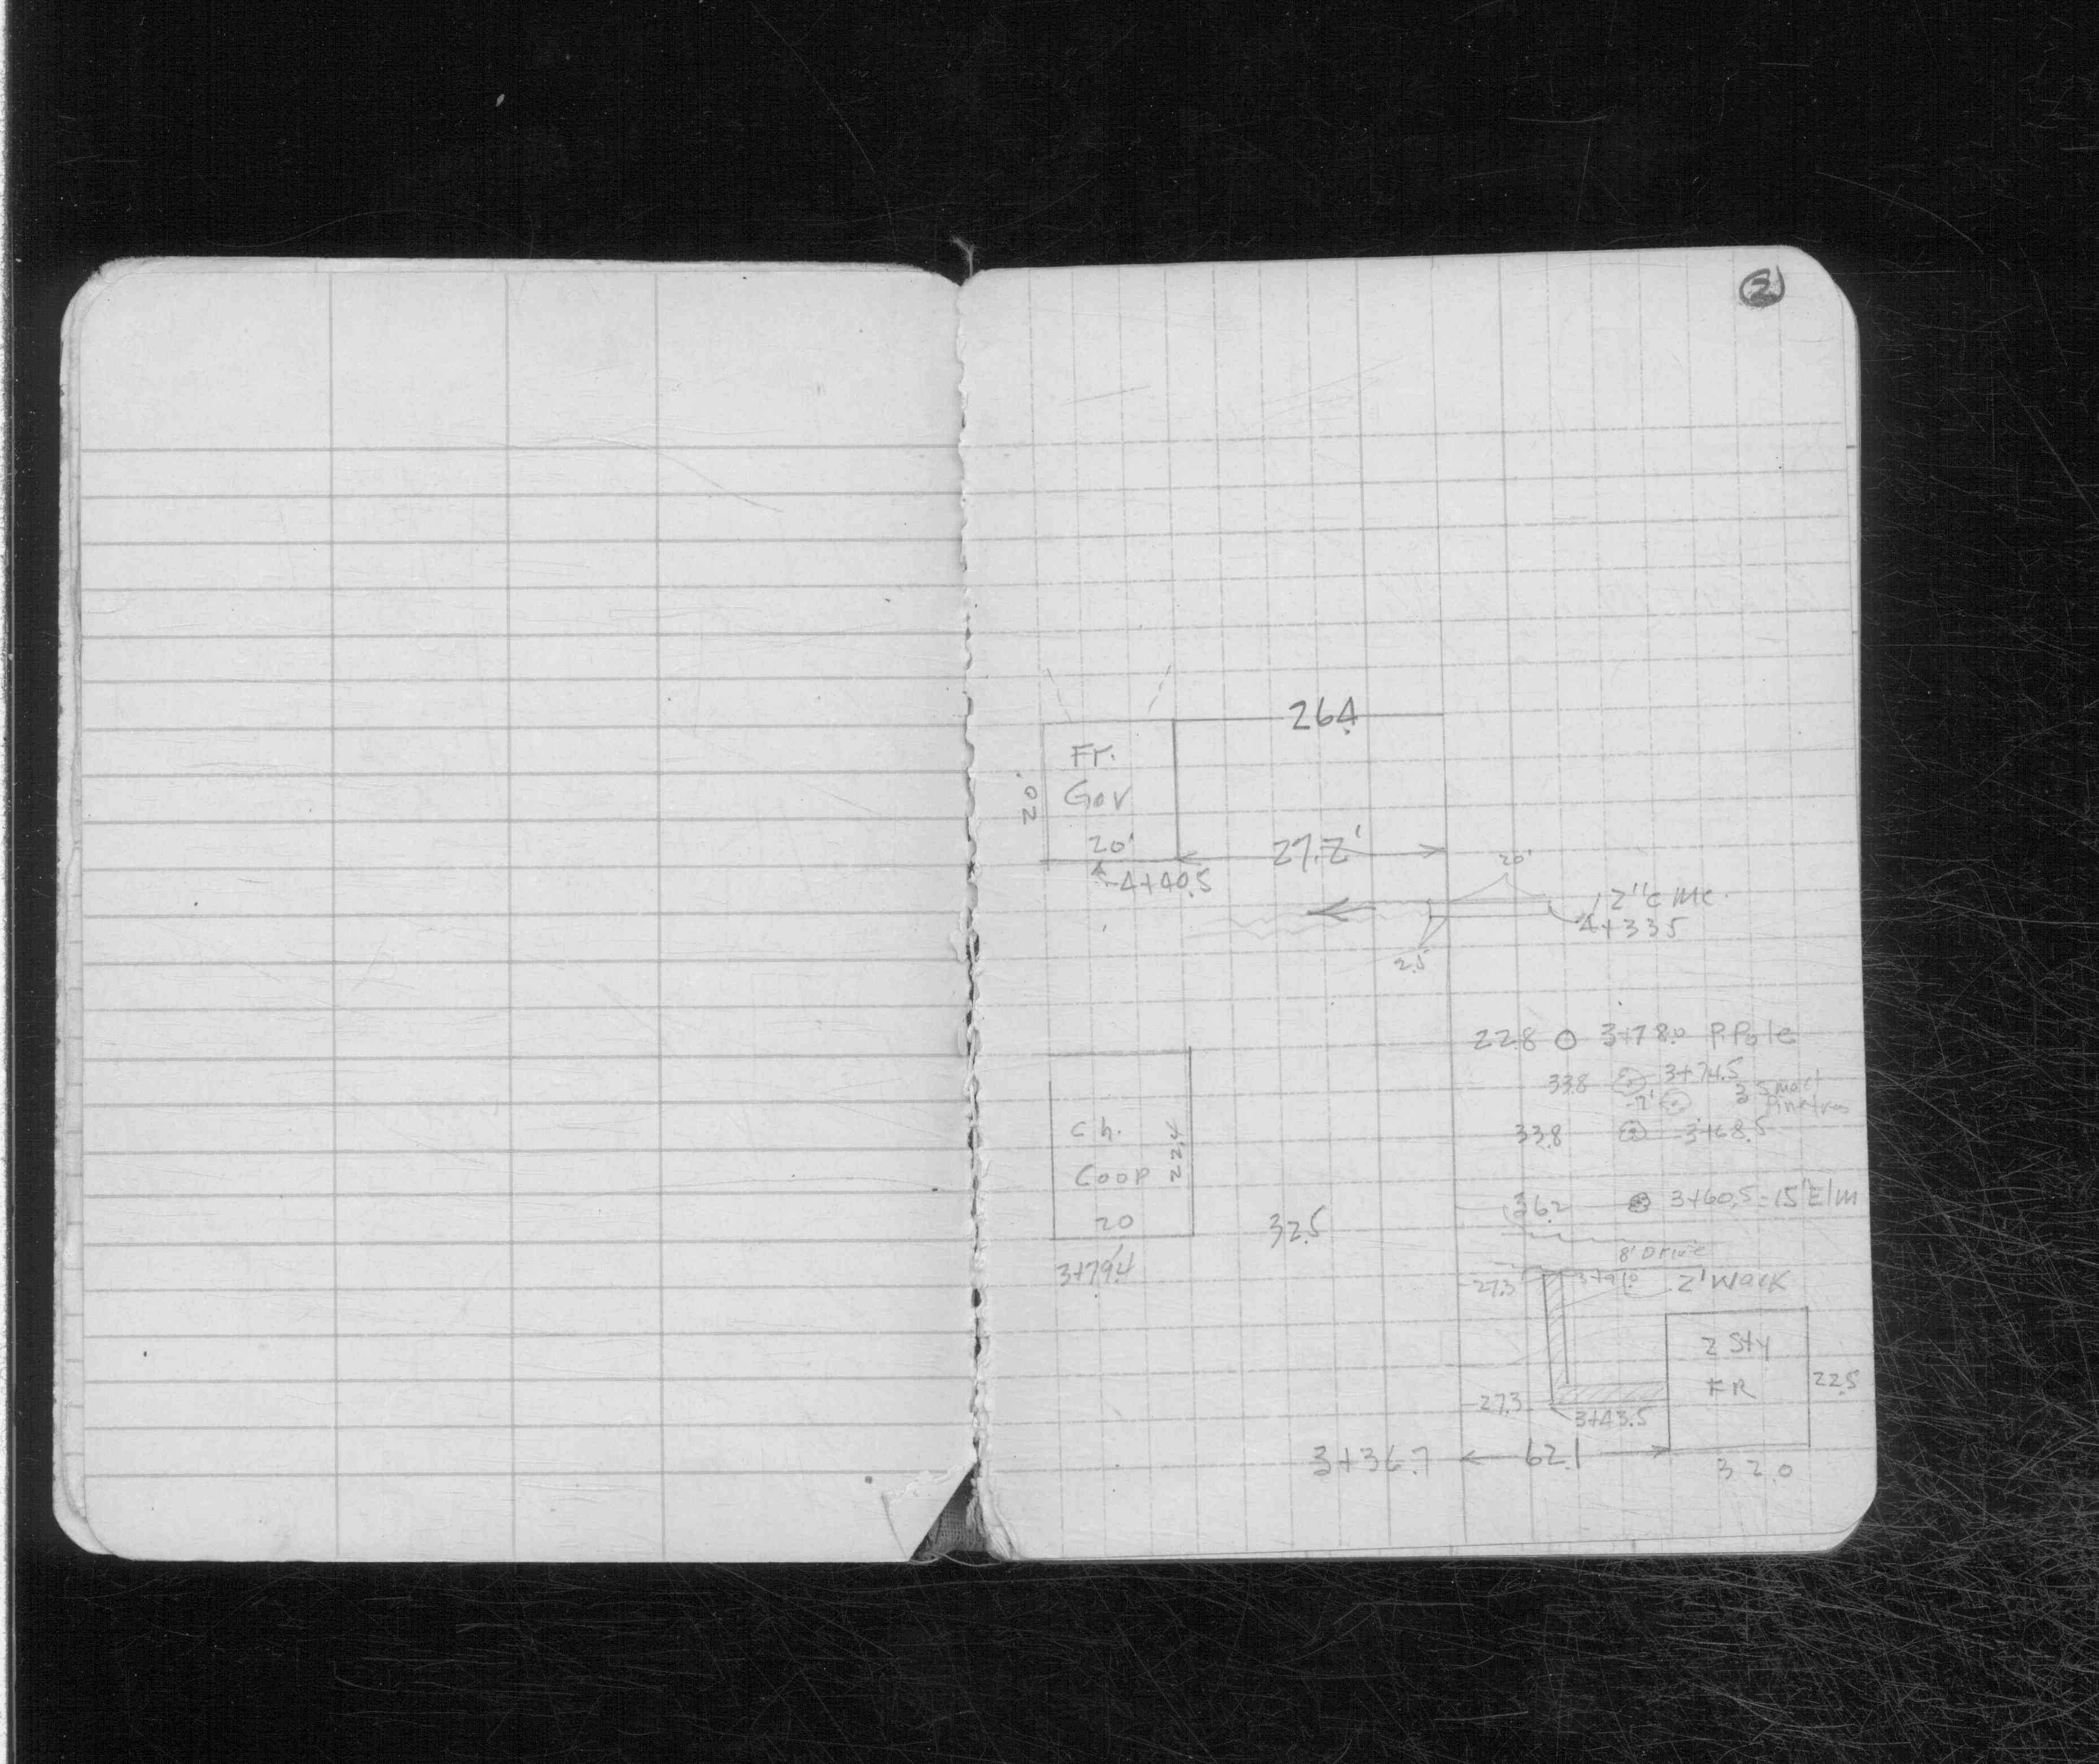 2
26.4
Fr.
Gar
20'
20'
27.2'
4+40.5
20'
12" C M C.
4+33.5
2.5
22.8 3+78.0 P. Pole
33.8 3+74.5
3 Small
7'
33.8 3+68.5
Ch.
Coop
22.4
20
32.5
3+79.4
36.2 3+60.5 = 15" Elm
8' Drive
27.3
2' Walk
2 Sty
FR
22.5
27.3
3+43.5
3+36.7 62.1
32.0